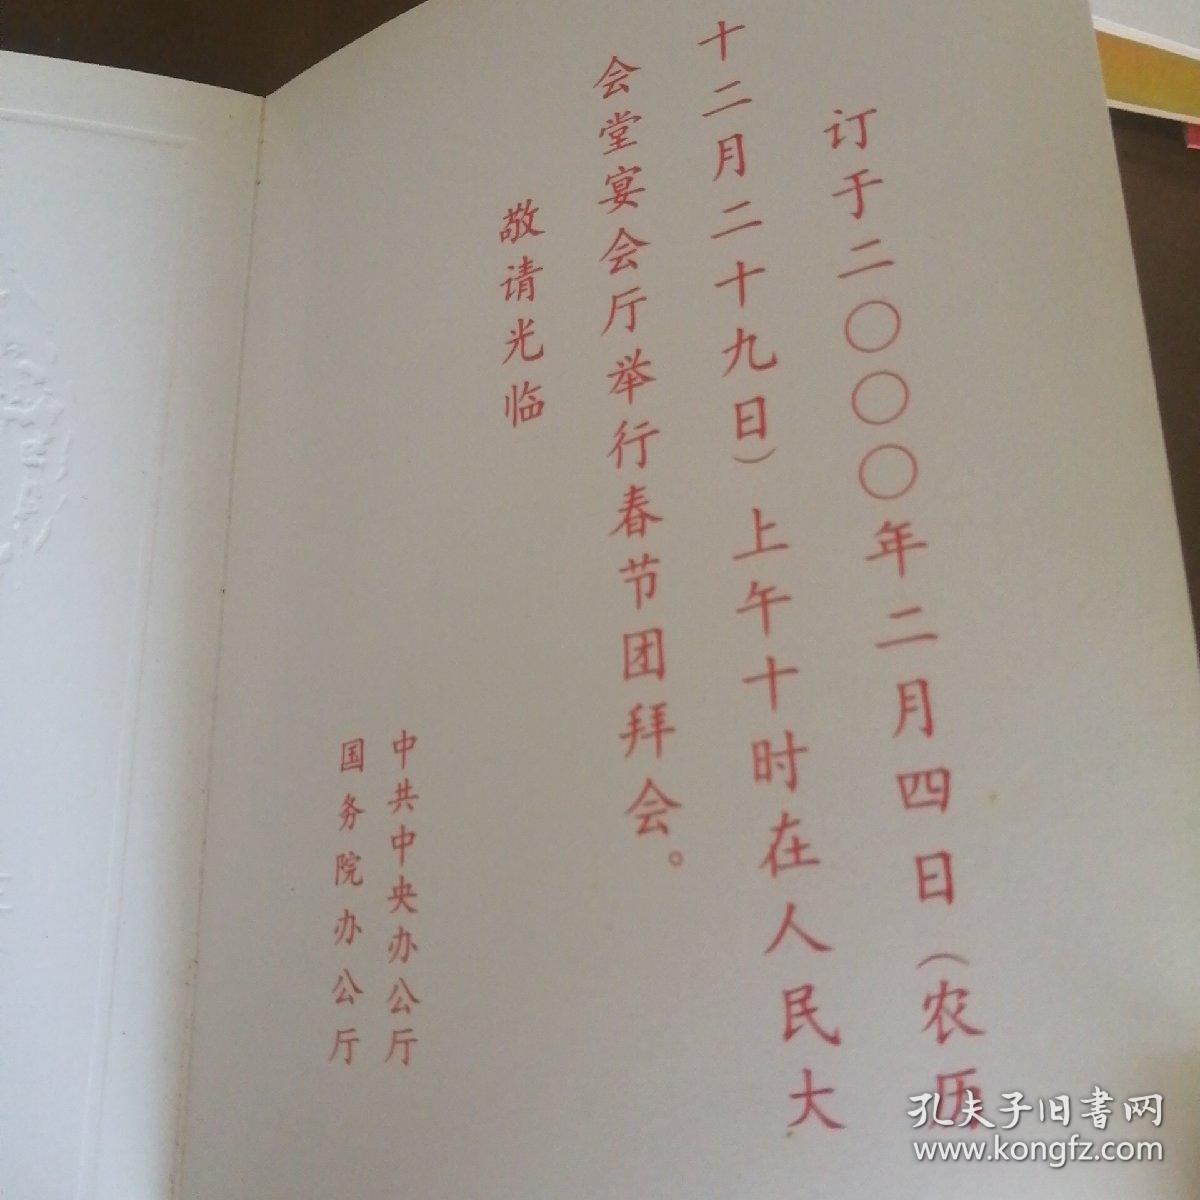 订于二〇〇〇年二月四日（农历
十二月二十九日）上午十时在人民大
会堂宴会厅举行春节团拜会。
敬请光临
中共中央办公厅
国务院办公厅
孔夫子旧書网
www.kongfz.com